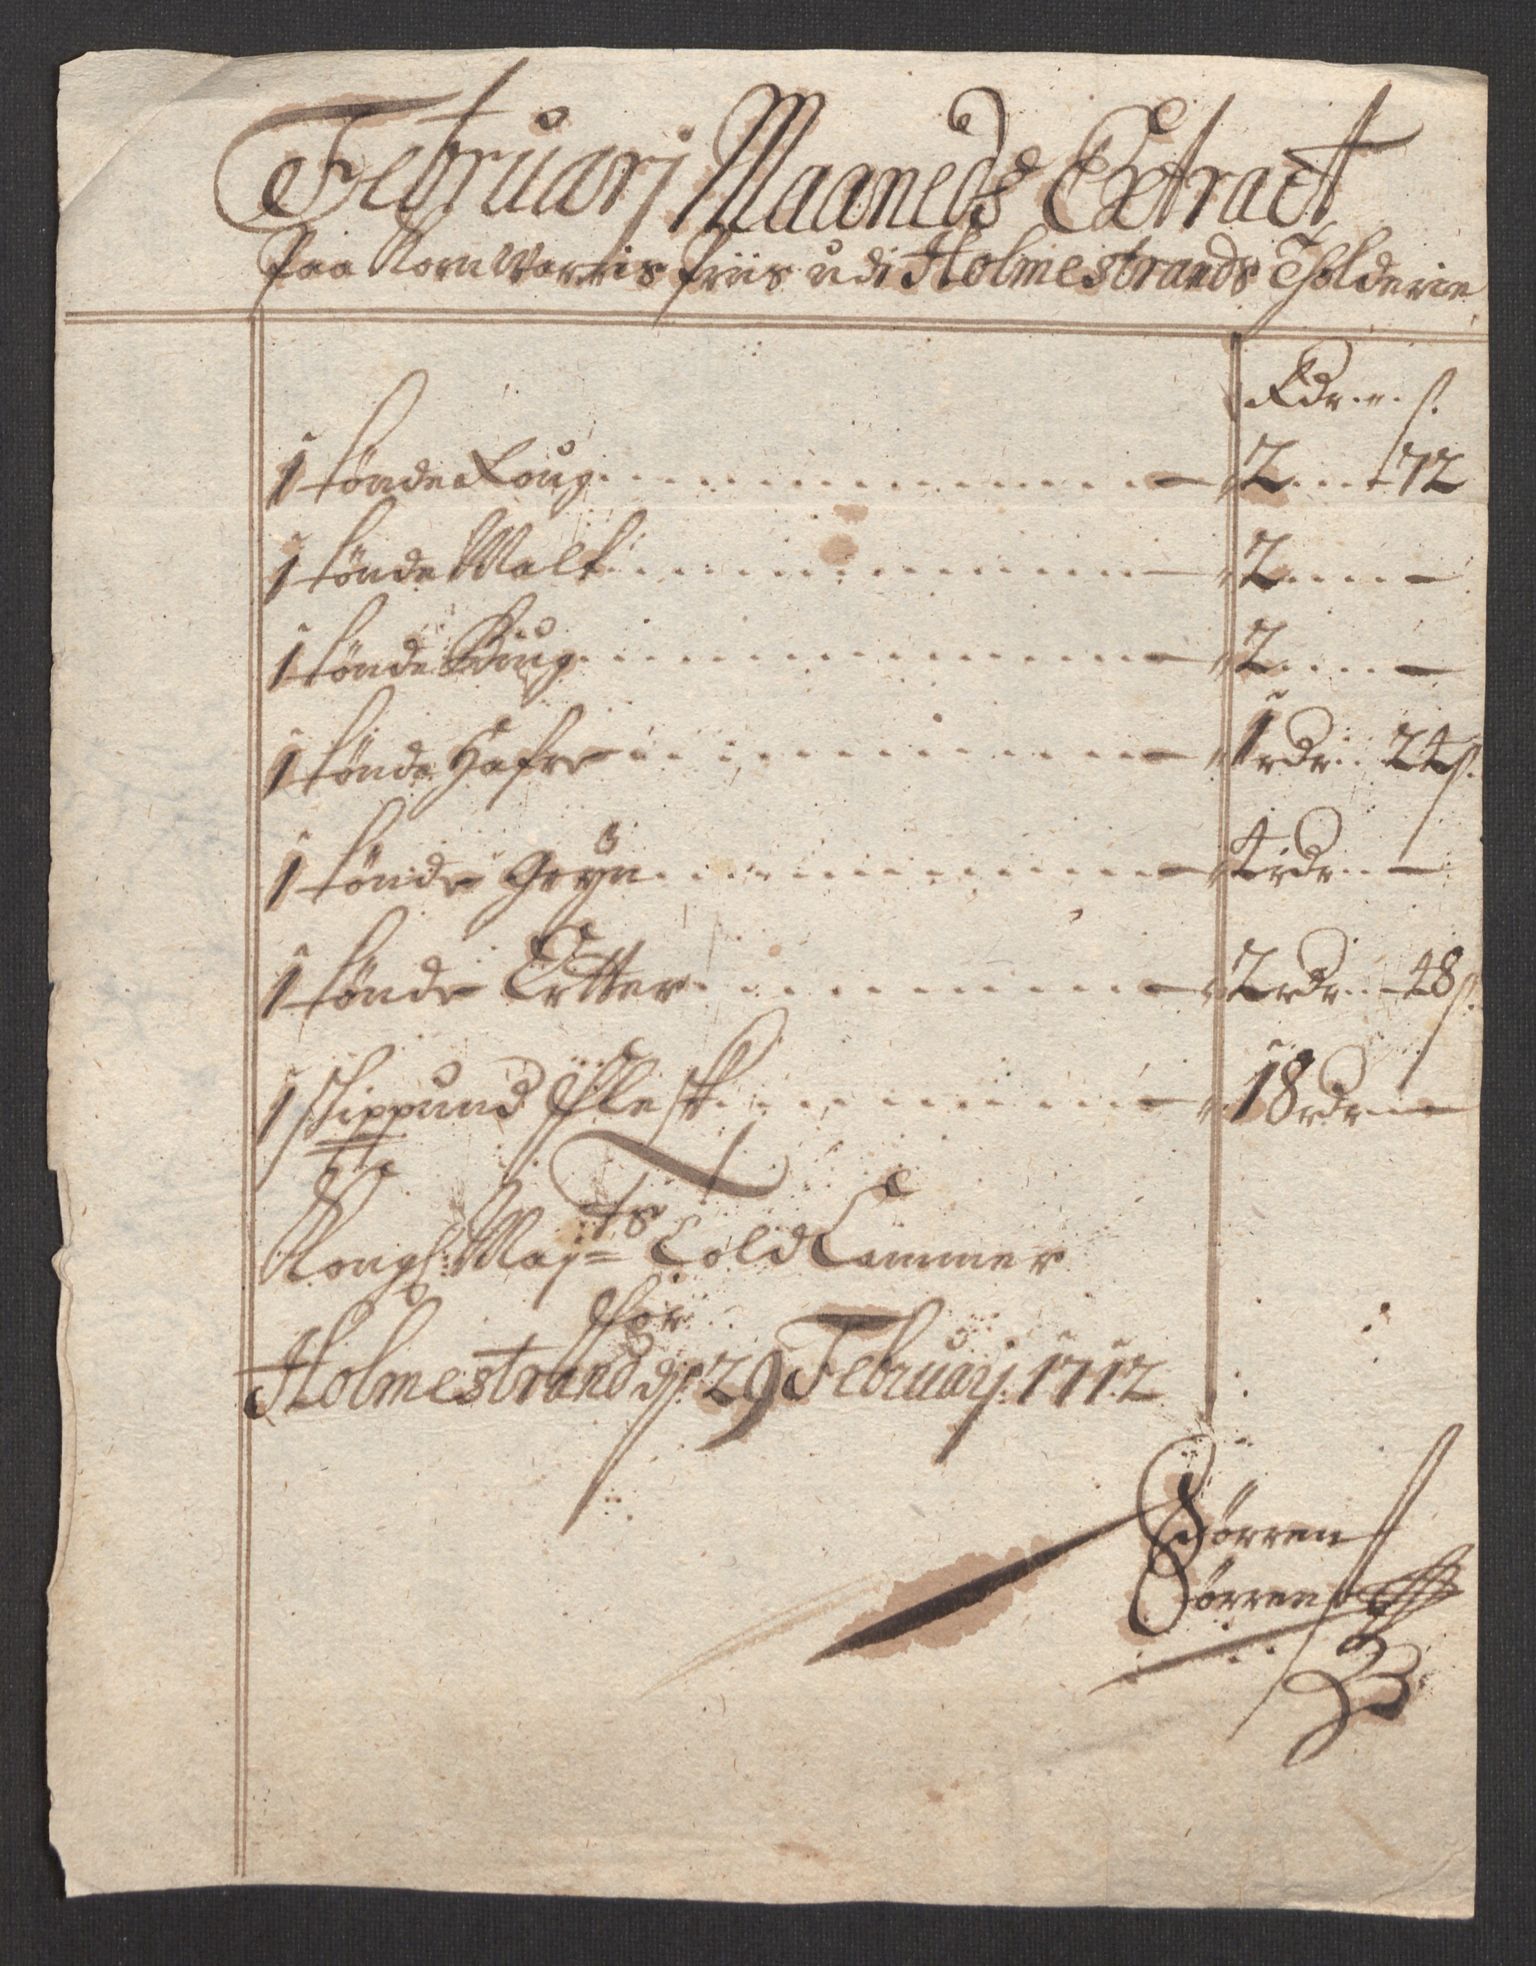 Februarj Maaneds Extract
Paa Korn Warris Priis udi Holmestrands Tholderie
Rdr. s.
1 tønde Roug 2 72
1 tønde Malt 2 —
1 tønde Biug 2 —
1 tønde Hafre 1 rdr 24 s.
1 tønde Gryn 4 rdr —
1 tønde Ertter 2 rdr 48 s.
1 Skippund Flesk 18 rdr —
Kongl. Majts Told Cammer
for
Holmestrand dn 29 Februarj 1712
Sørren
Sørrens